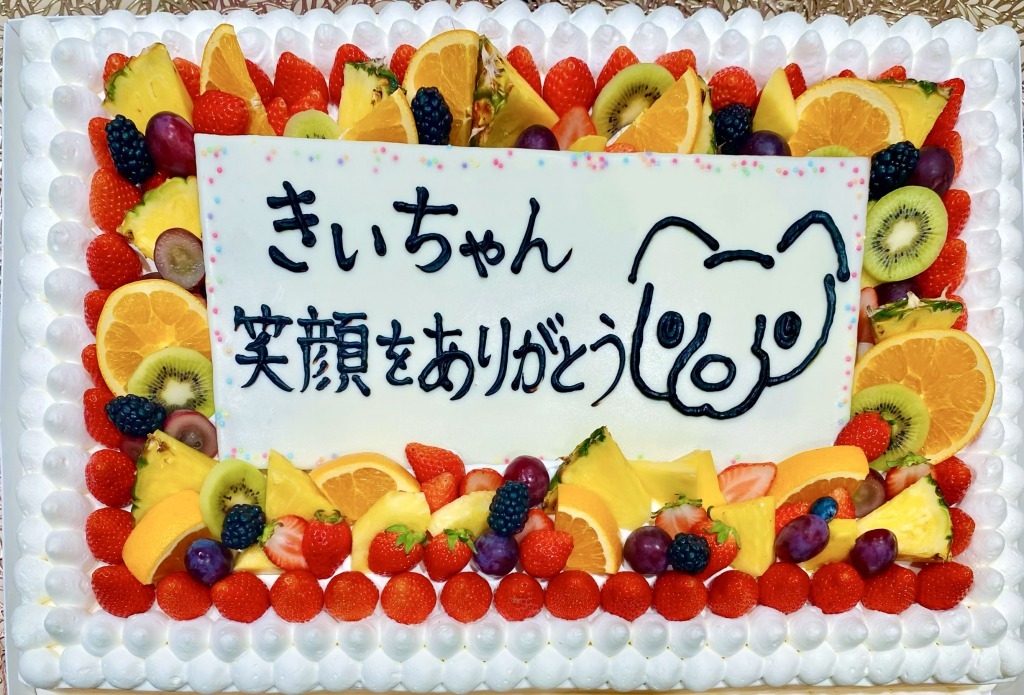 きぃちゃん
笑顔をありがとう